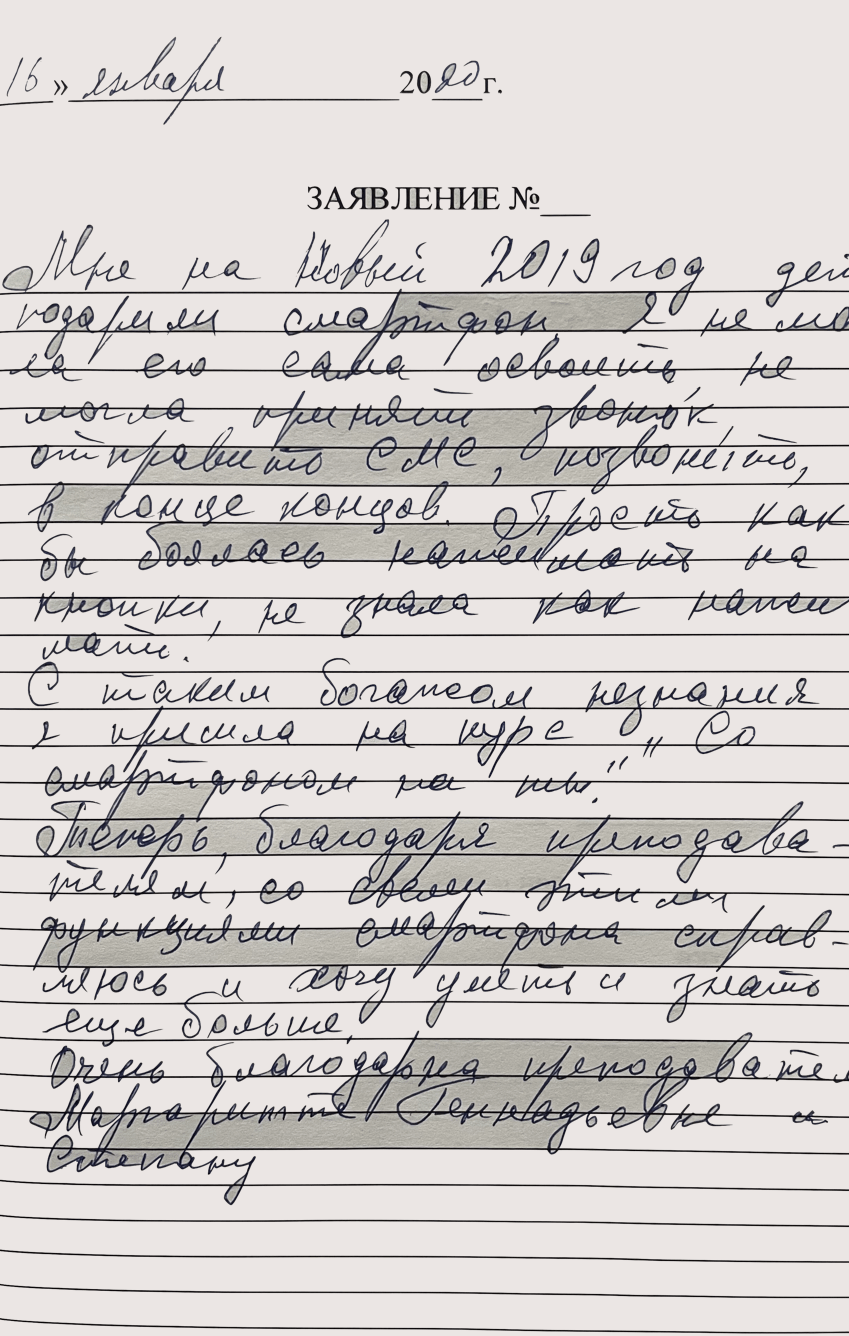 16 » января 2020 г.
ЗАЯВЛЕНИЕ №
Мне на Новый 2019 год дет
подарили смартфон. Я не мо
ла его сама освоить, не
могла принять звонок,
отправить СМС, позвонить,
в конце концов. Просто как
бы боялась нажимать на
кнопки, не знала как нажи
мать.
С таким богажом незнания
я пришла на курс „Со
смартфоном на ты."
Теперь, благодаря преподава-
телям, со своими этими
функциями смартфона справ-
ляюсь и хочу уметь и знать
еще больше.
Очень благодарна преподавател
Маргаритте Геннадьевне и
Степану